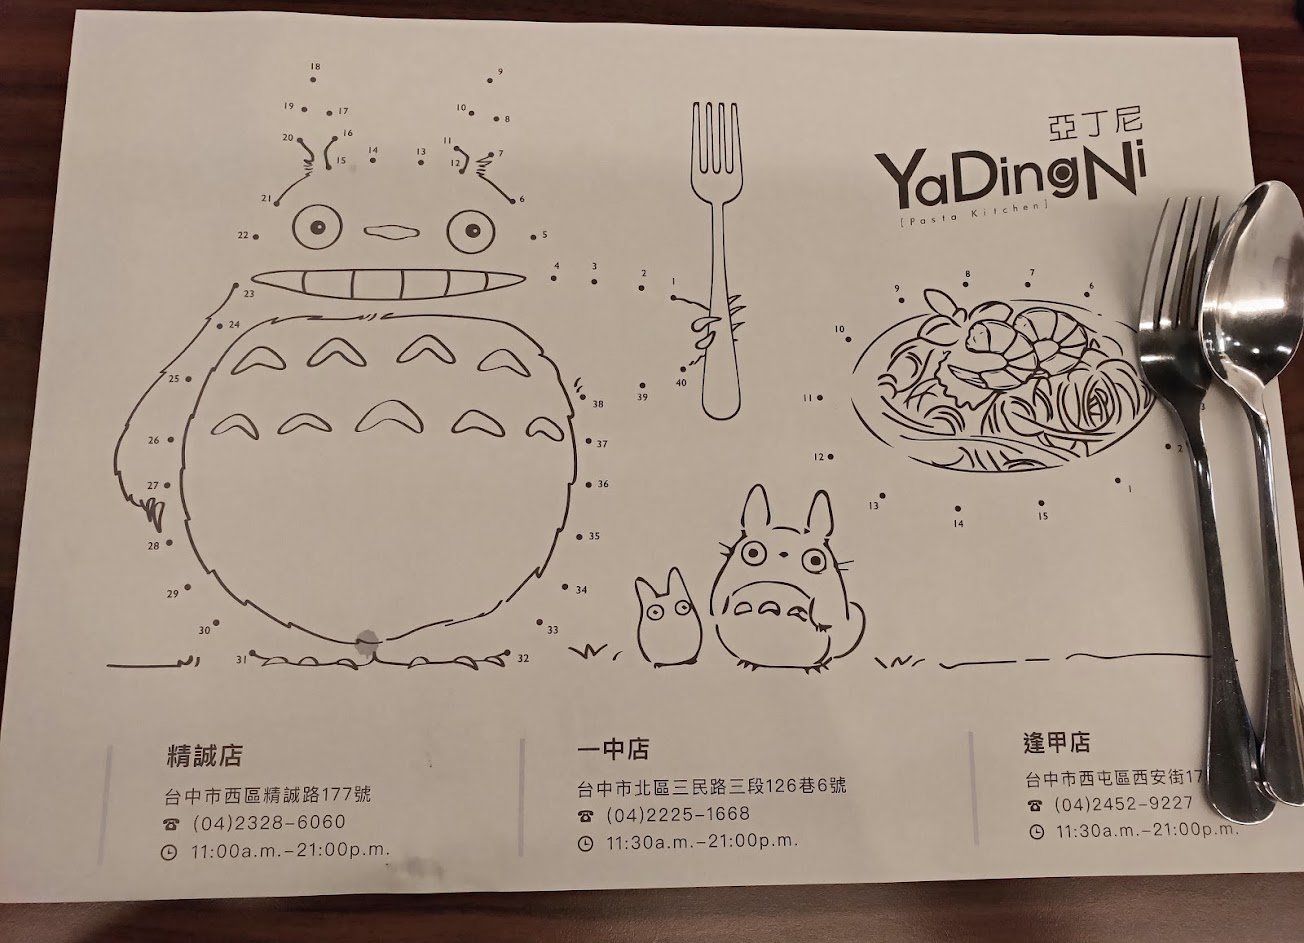 亞丁尼
YaDingNi
[Pasta Kitchen]
18
9
19
17
10
8
20
16
14
13
11
7
15
12
21
6
22
5
4
3
2
1
23
24
25
26
27
28
29
30
31
32
33
34
35
36
37
38
39
40
8
7
9
6
10
11
3
12
2
13
1
14
15
精誠店
台中市西區精誠路177號
(04)2328-6060
11:00a.m.-21:00p.m.
一中店
台中市北區三民路三段126巷6號
(04)2225-1668
11:30a.m.-21:00p.m.
逢甲店
台中市西屯區西安街17
(04)2452-9227
11:30a.m.-21:00p.m.